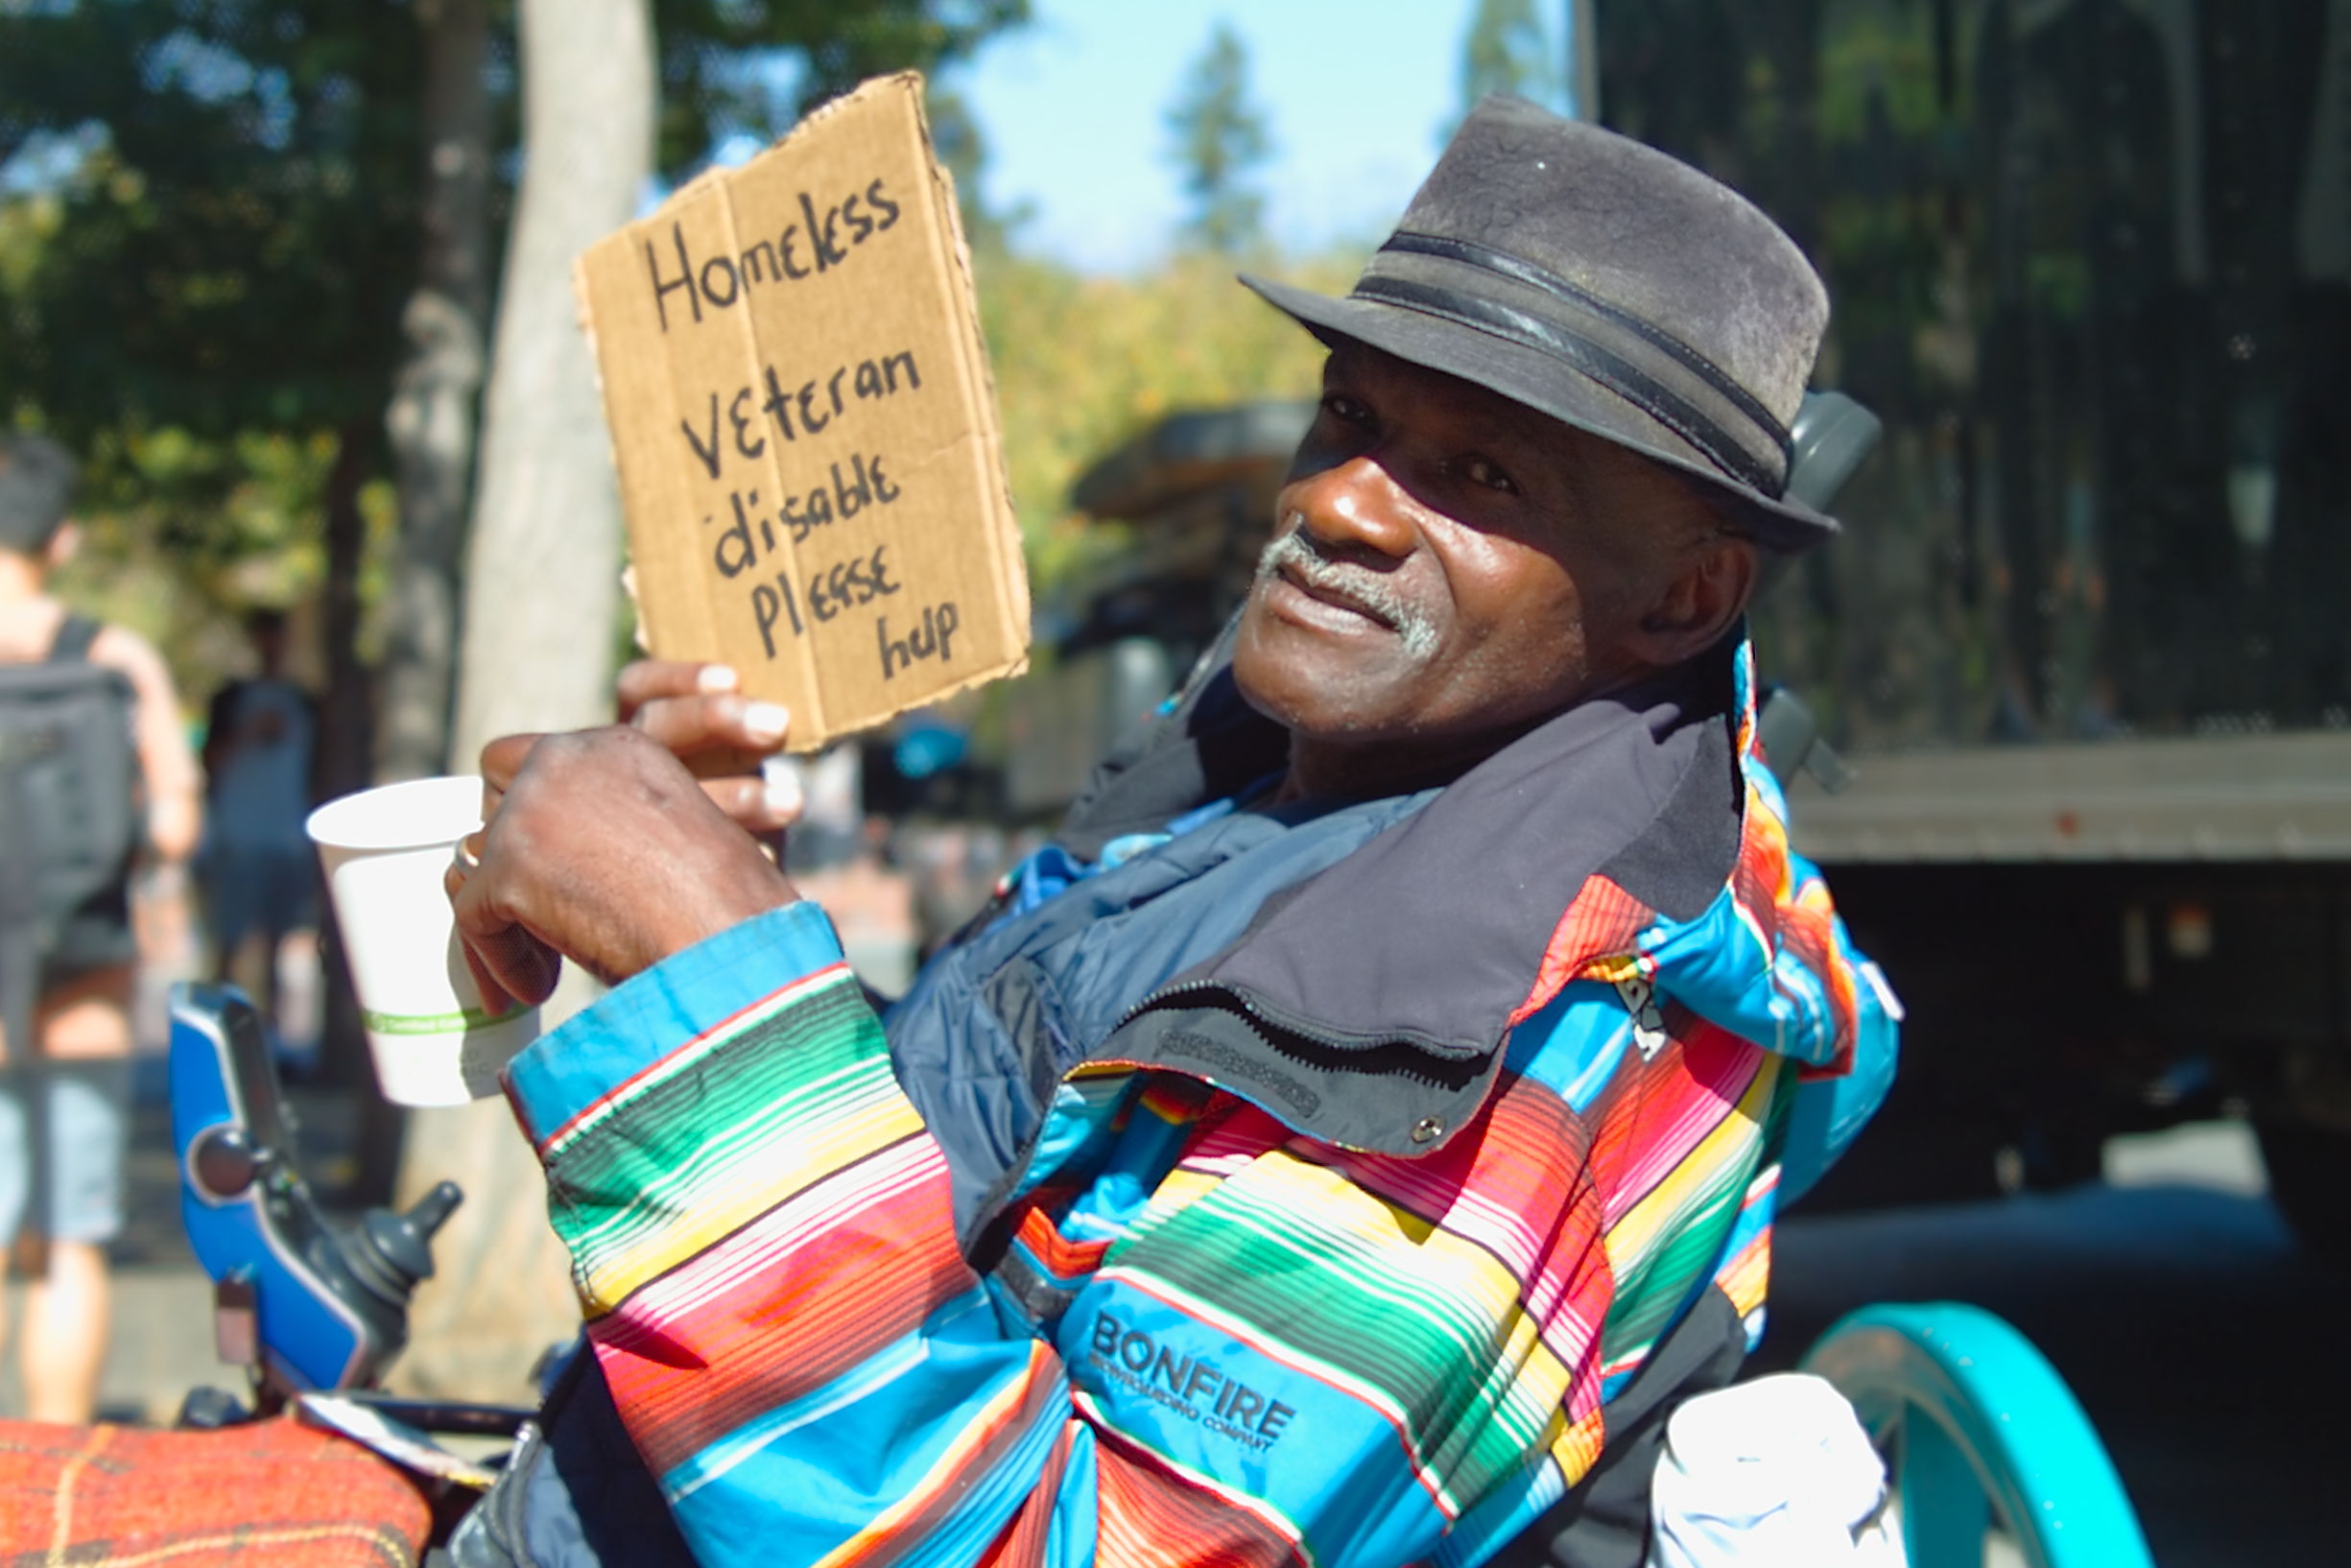 Homeless
veteran
disable
please
help
BONFIRE
SNOWBOARDING COMPANY